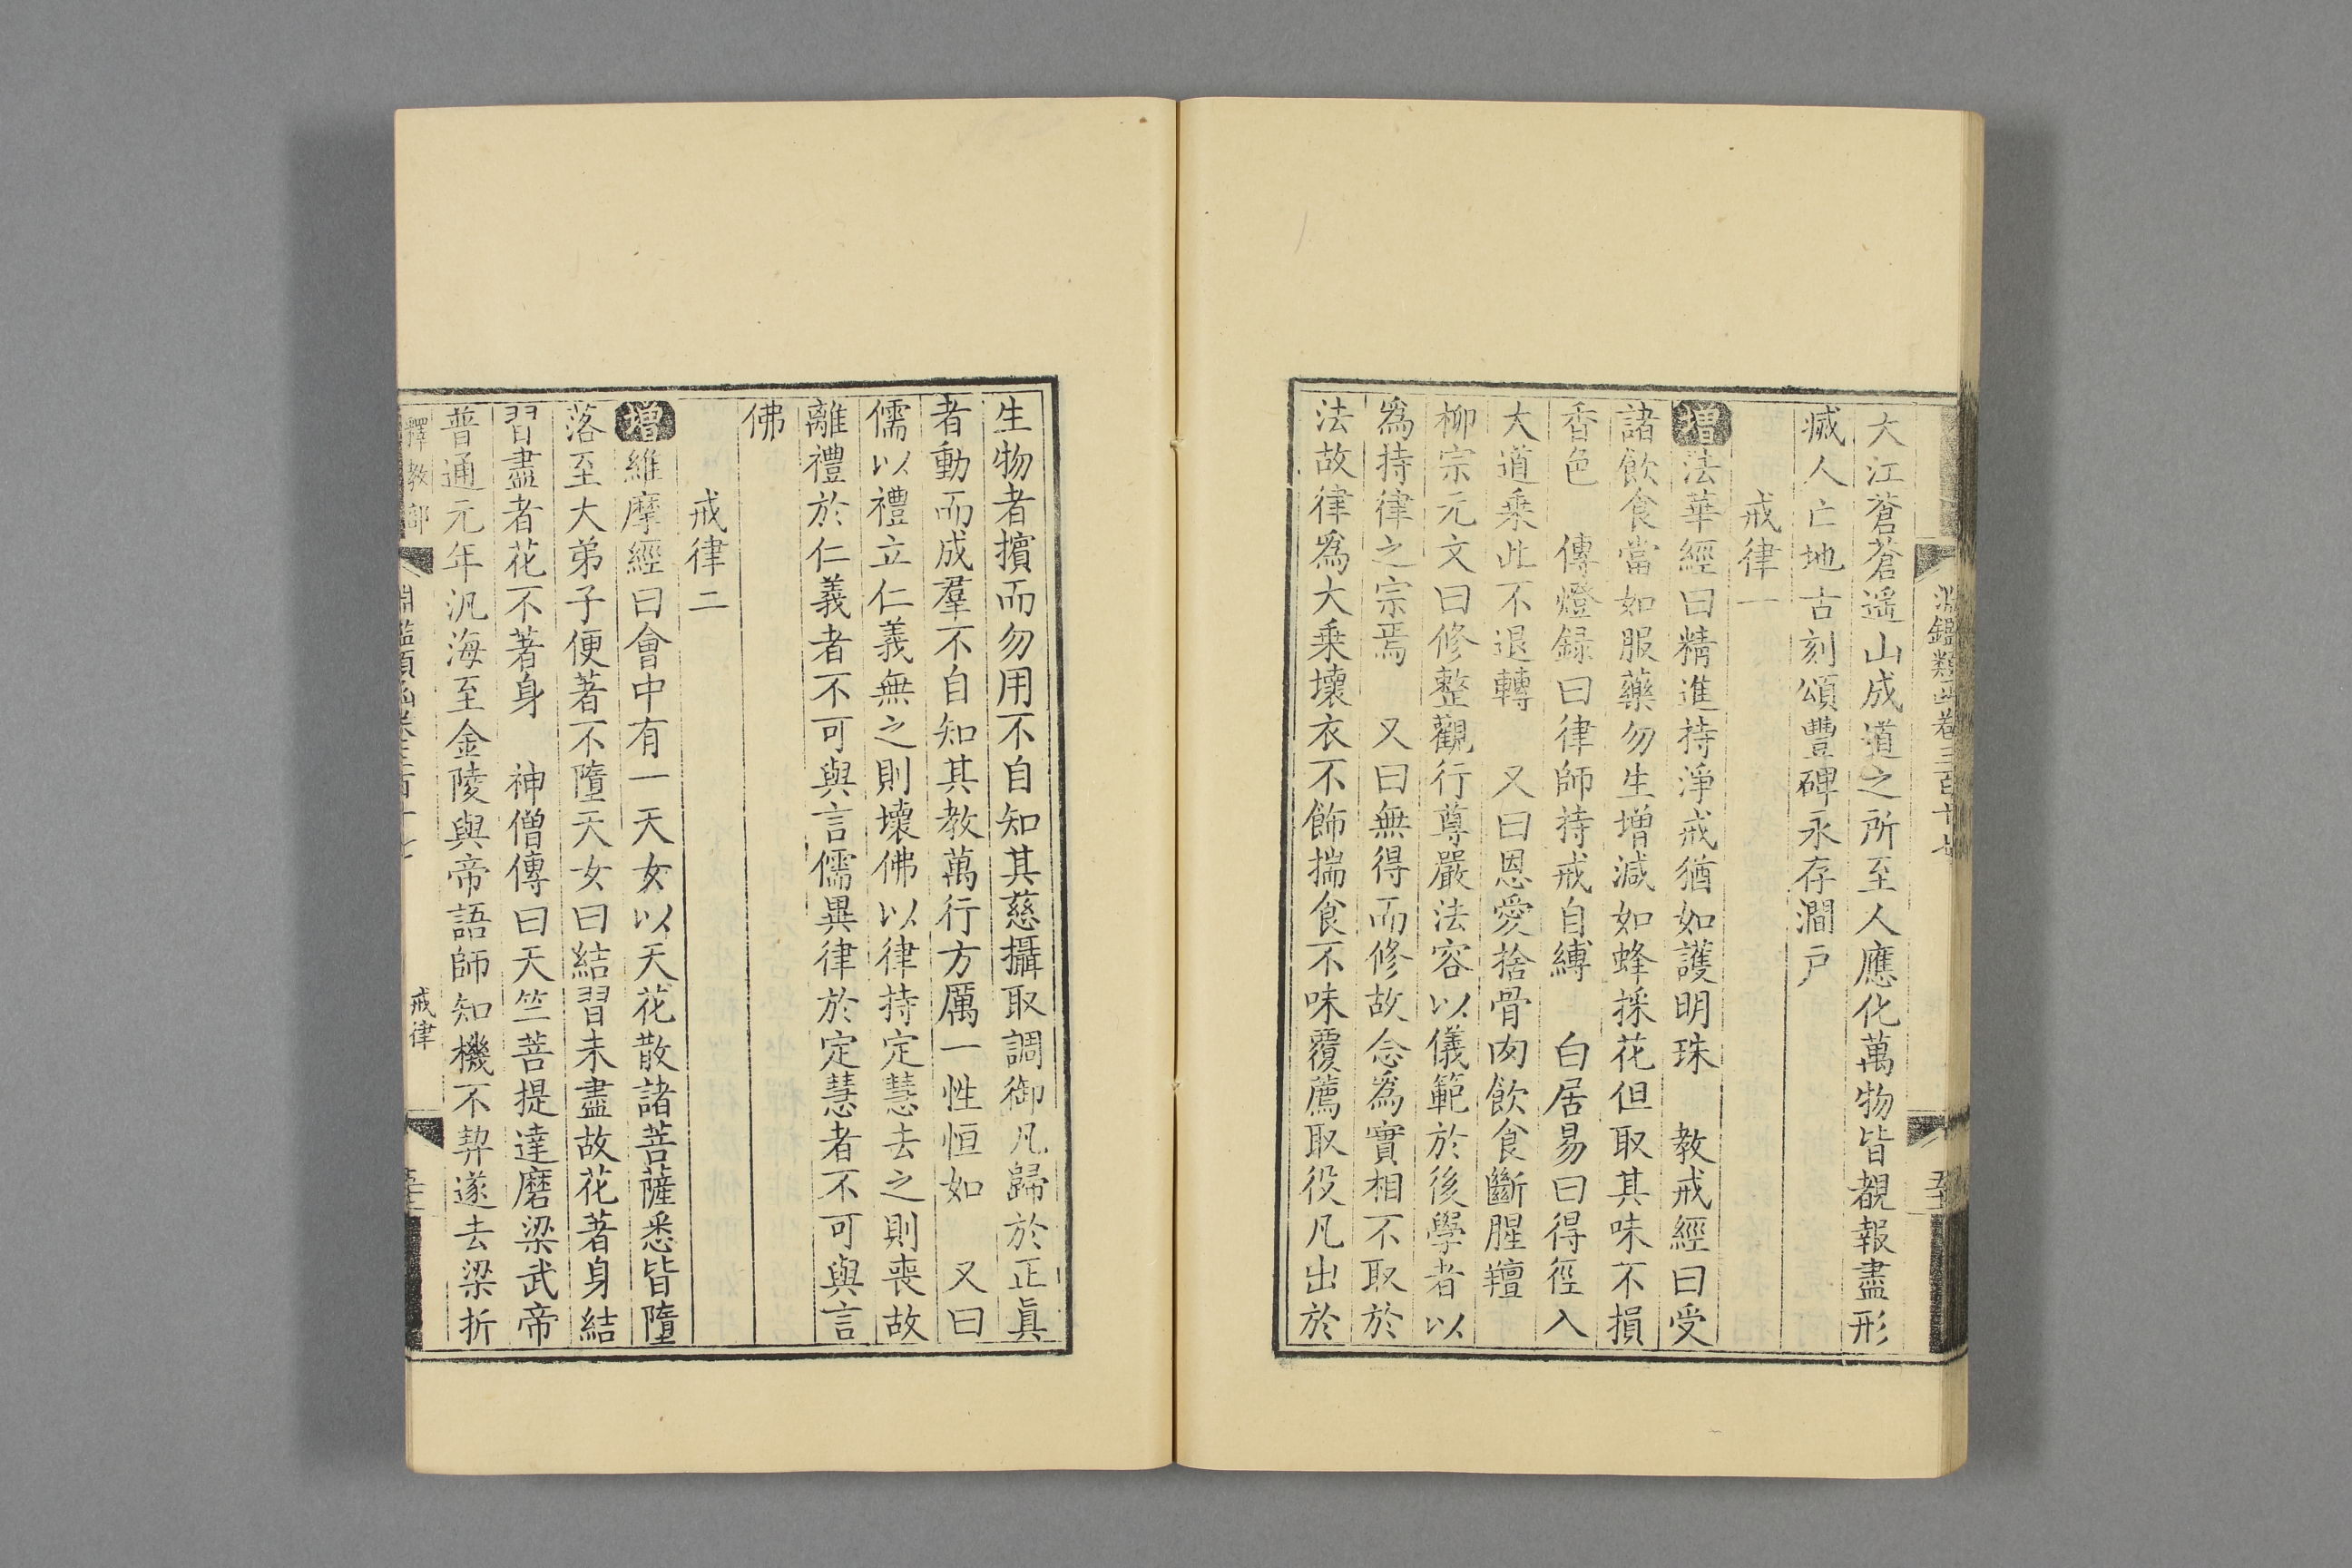 淵鑑類函卷三百十七
大江蒼蒼遥山成道之所至人應化萬物皆覩報盡形
瘢人亡地古刻頌豐碑永存澗戸
戒律一
增法華經曰精進持淨戒猶如護明珠　教戒經曰受
諸飲食當如服藥勿生增減如蜂採花但取其味不損
香色　傳燈録曰律師持戒自縛　白居易曰得徑入
大道乘此不退轉　又曰恩愛捨骨肉飲食斷腥羶
柳宗元文曰修整觀行尊嚴法容以儀範於後學者以
爲持律之宗焉　又曰無得而修故念爲實相不取於
法故律爲大乘壞衣不飾揣食不味覆薦取役凡出於
生物者擯而勿用不自知其慈攝取調御凡歸於正眞
者動而成羣不自知其教萬行方厲一性恒如　又曰
儒以禮立仁義無之則壞佛以律持定慧去之則喪故
離禮於仁義者不可與言儒異律於定慧者不可與言
佛
戒律二
增維摩經曰會中有一天女以天花散諸菩薩悉皆墮
落至大弟子便著不墮天女曰結習未盡故花著身結
習盡者花不著身　神僧傳曰天竺菩提達磨梁武帝
普通元年汎海至金陵與帝語師知機不契遂去梁折
釋教部
淵鑑類函卷三百十七
戒律